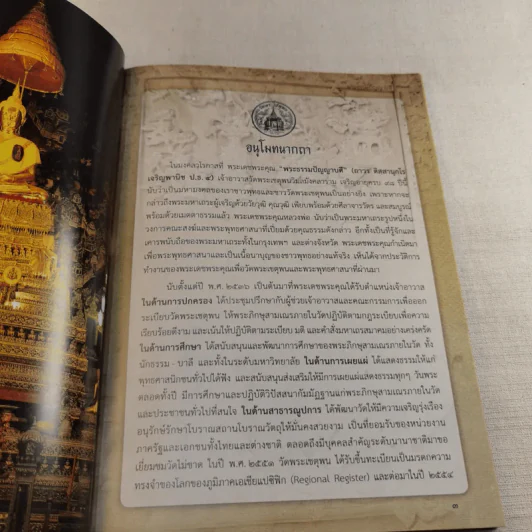 อนุโมทนากถา
ในมงคลวโรกาสที่ พระเดชพระคุณ "พระธรรมปัญญาบดี" (ถาวร ติสฺสานุกโร
เจริญพานิช ป.ธ. ๔) เจ้าอาวาสวัดพระเชตุพนวิมลมังคลาราม เจริญอายุครบ ปี
นับว่าเป็นมหามงคลของเราชาวพุทธและชาววัดพระเชตุพนเป็นอย่างยิ่ง เพราะหากจะ
กล่าวถึงพระมหาเถระผู้เจริญด้วยวัยวุฒิ คุณวุฒิ เพียบพร้อมด้วยศีลาจารวัตร และสมบูรณ์
พร้อมด้วยเมตตาธรรมแล้ว พระเดชพระคุณหลวงพ่อ นับว่าเป็นพระมหาเถระรูปหนึ่งใน
วงการคณะสงฆ์และพระพุทธศาสนาที่เปี่ยมด้วยคุณธรรมดังกล่าว อีกทั้งเป็นที่รู้จักและ
เคารพนับถือของพระมหาเถระทั้งในกรุงเทพฯ และต่างจังหวัด พระเดชพระคุณกำเนิดมา
เพื่อพระพุทธศาสนาและเป็นเนื้อนาบุญของชาวพุทธอย่างแท้จริง เห็นได้จากประวัติการ
ทำงานของพระเดชพระคุณเพื่อวัดพระเชตุพนและพระพุทธศาสนาที่ผ่านมา
นับตั้งแต่ปี พ.ศ. ๒๕๓๖ เป็นต้นมาที่พระเดชพระคุณได้รับตำแหน่งเจ้าอาวาส
ในด้านการปกครอง ได้ประชุมปรึกษากับผู้ช่วยเจ้าอาวาสและคณะกรรมการเพื่อออก
ระเบียบวัดพระเชตุพน ให้พระภิกษุสามเณรภายในวัดปฏิบัติตามกฎระเบียบเพื่อความ
เรียบร้อยดีงาม และเน้นให้ปฏิบัติตามระเบียบ มติ และคำสั่งมหาเถรสมาคมอย่างเคร่งครัด
ในด้านการศึกษา ได้สนับสนุนและพัฒนาการศึกษาของพระภิกษุสามเณรภายในวัด ทั้ง
นักธรรม - บาลี และทั้งในระดับมหาวิทยาลัย ในด้านการเผยแผ่ ได้แสดงธรรมให้แก่
พุทธศาสนิกชนทั่วไปได้ฟัง และสนับสนุนส่งเสริมให้มีการเผยแผ่แสดงธรรมทุกๆ วันพระ
ตลอดทั้งปี มีการศึกษาและปฏิบัติวิปัสสนากัมมัฏฐานแก่พระภิกษุสามเณรภายในวัด
และประชาชนทั่วไปที่สนใจ ในด้านสาธารณูปการ ได้พัฒนาวัดให้มีความเจริญรุ่งเรือง
อนุรักษ์รักษาโบราณสถานโบราณวัตถุให้มั่นคงสวยงาม เป็นที่ยอมรับของหน่วยงาน
ภาครัฐและเอกชนทั้งไทยและต่างชาติ ตลอดถึงมีบุคคลสำคัญระดับนานาชาติมาขอ
เยี่ยมชมวัดไม่ขาด ในปี พ.ศ. ๒๕๕๑ วัดพระเชตุพน ได้รับขึ้นทะเบียนเป็นมรดกความ
ทรงจำของโลกของภูมิภาคเอเชียแปซิฟิก (Regional Register) และต่อมาในปี ๒๕๕๔